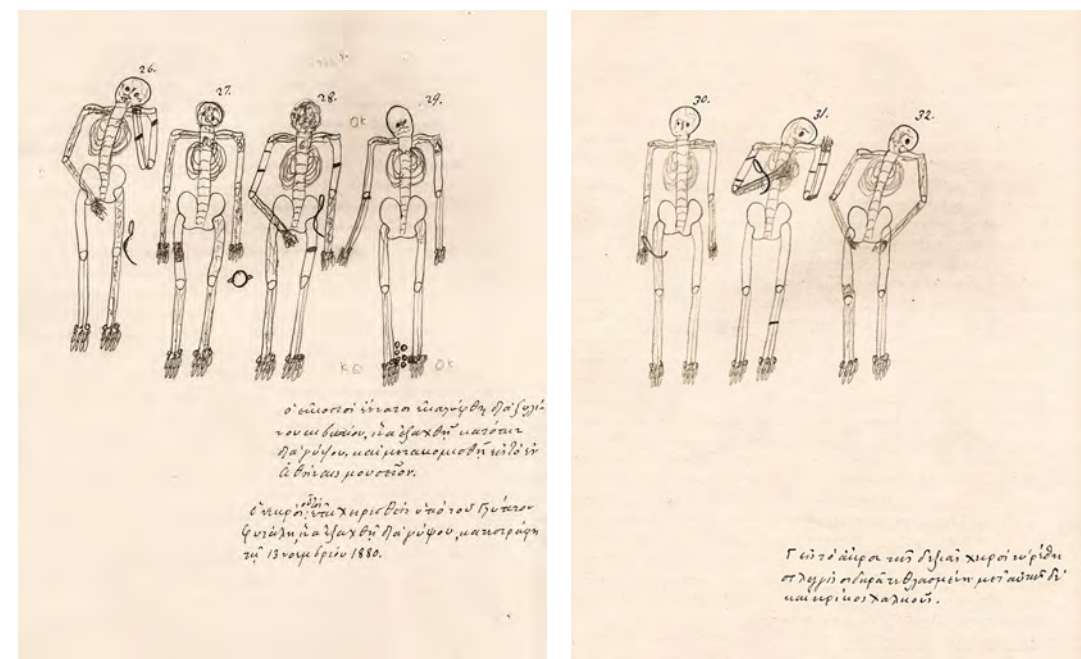 26.
27.
28.
29.
ΟΚ
ΚΘ ΟΚ
ὁ εἰκοστὸς ἔνατος ἐκαλύφθη διὰ ξυλί-
νου κιβωτίου, ἵνα ἐξαχθῇ κατόπιν
διὰ γύψου, καὶ μετακομισθῇ εἰς τὸ ἐν
Ἀθήναις μουσεῖον.
Ὁ νεκρὸς οὗτος χειρισθεὶς ὑπὸ τοῦ Γλύπτου
Φυτάλη, ἵνα ἐξαχθῇ διὰ γύψου, κατεστράφη
τῇ 13 νοεμβρίου 1880.
30.
31.
32.
εἰς τὸ ἄκρον τῆς δεξιᾶς χειρὸς εὑρέθη
στλεγγὶς σιδηρᾶ τεθλασμένη μετ' αὐτῆς δὲ
καὶ κρίκος χαλκοῦς.